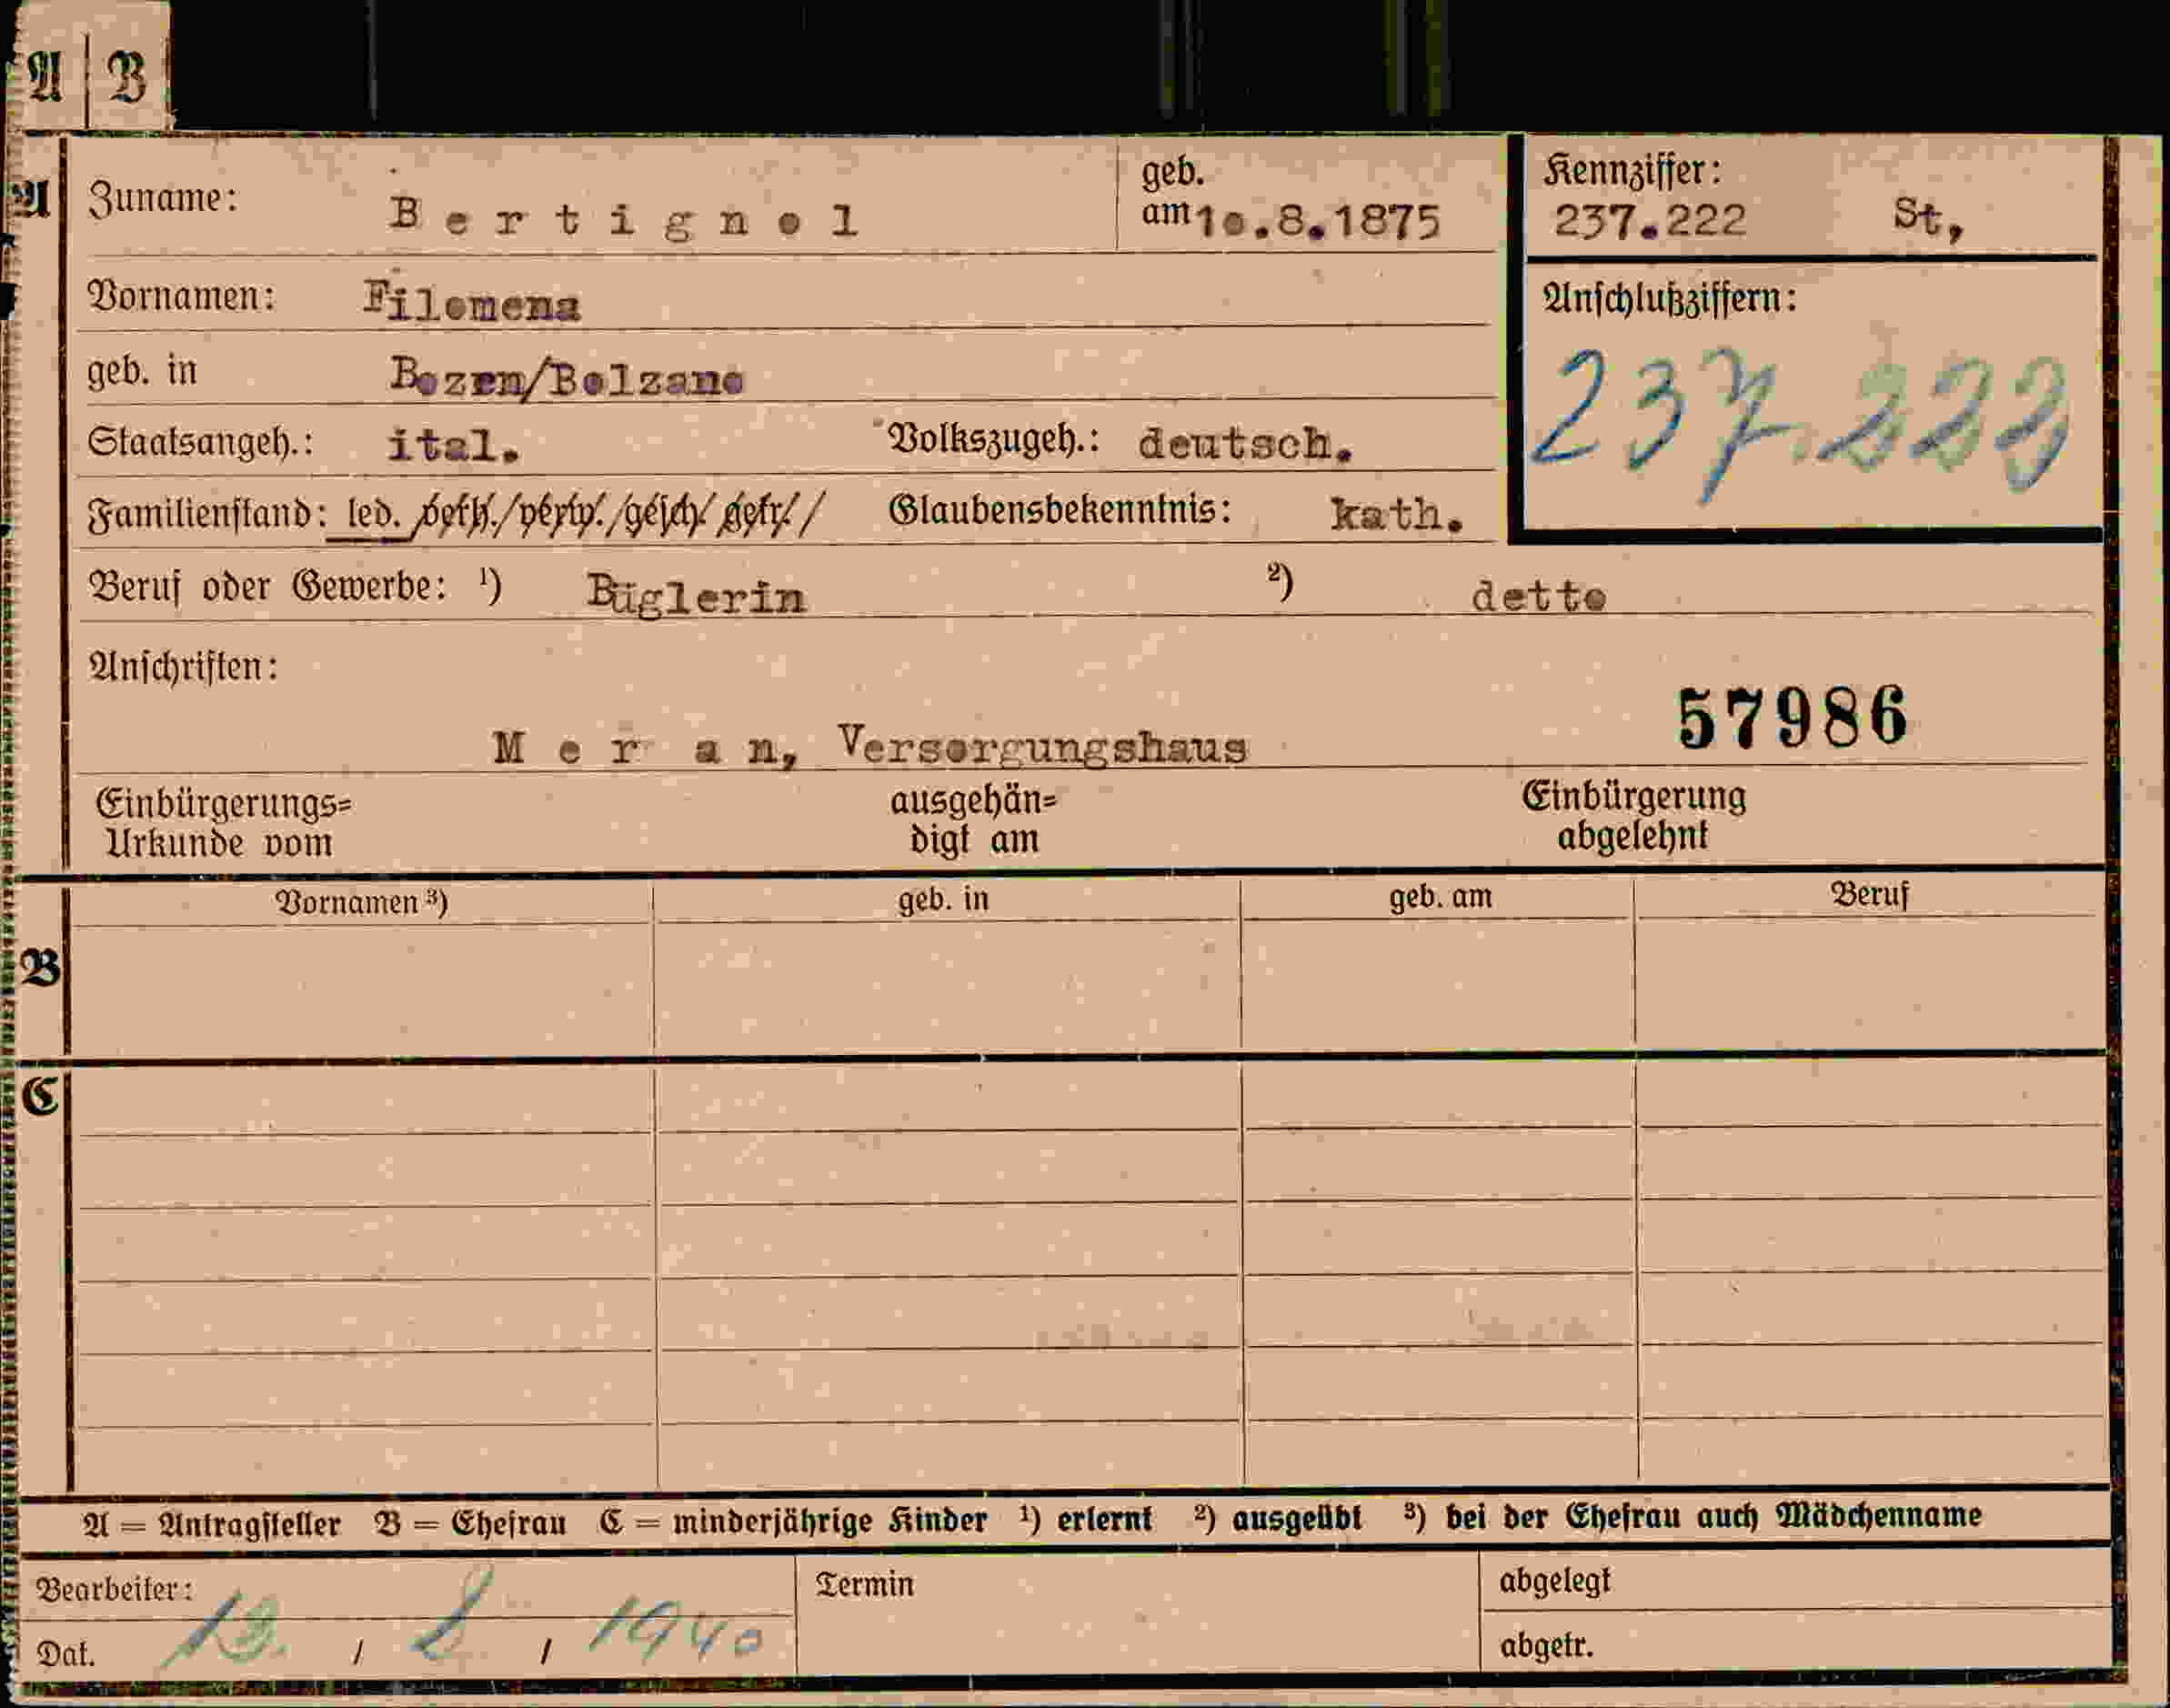 A | B
A
Zuname: Bertignol
geb. am 10.8.1875
Kennziffer: 237.222 St,
Vornamen: Filomena
Anschlußziffern:
237.223
geb. in Bozen/Bolzano
Staatsangeh.: ital. Volkszugeh.: deutsch.
Familienstand: led. verh./verw./gesch./getr./ Glaubensbekenntnis: kath.
Beruf oder Gewerbe: ¹) Büglerin ²) detto
Anschriften:
57986
Meran, Versorgungshaus
Einbürgerungs= Urkunde vom
ausgehän= digt am
Einbürgerung abgelehnt
Vornamen ³) geb. in geb. am Beruf
B
C
A = Antragsteller B = Ehefrau C = minderjährige Kinder ¹) erlernt ²) ausgeübt ³) bei der Ehefrau auch Mädchenname
Bearbeiter: Termin abgelegt
Dat. 13. / / 1940 abgetr.